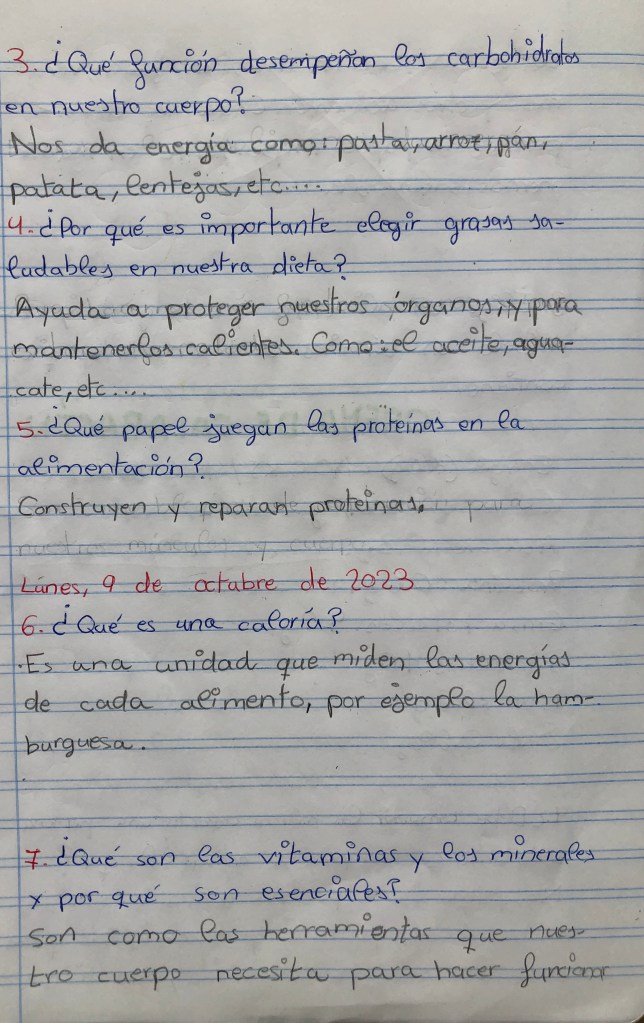 3. ¿Qué función desempeñan los carbohidratos
en nuestro cuerpo?
Nos da energía como: pasta, arroz, pan,
patata, lentejas, etc....
4. ¿Por qué es importante elegir grasas sa-
ludables en nuestra dieta?
Ayuda a proteger nuestros órganos, y para
mantenerlos calientes. Como: el aceite, agua-
cate, etc....
5. ¿Qué papel juegan las proteínas en la
alimentación?
Construyen y reparan proteinas. para
nuestros músculos y cuerpo
Lunes, 9 de octubre de 2023
6. ¿Qué es una caloría?
.Es una unidad que miden las energías
de cada alimento, por ejemplo la ham-
burguesa.
7. ¿Qué son las vitaminas y los minerales
y por qué son esenciales?
Son como las herramientas que nues-
tro cuerpo necesita para hacer funcionar